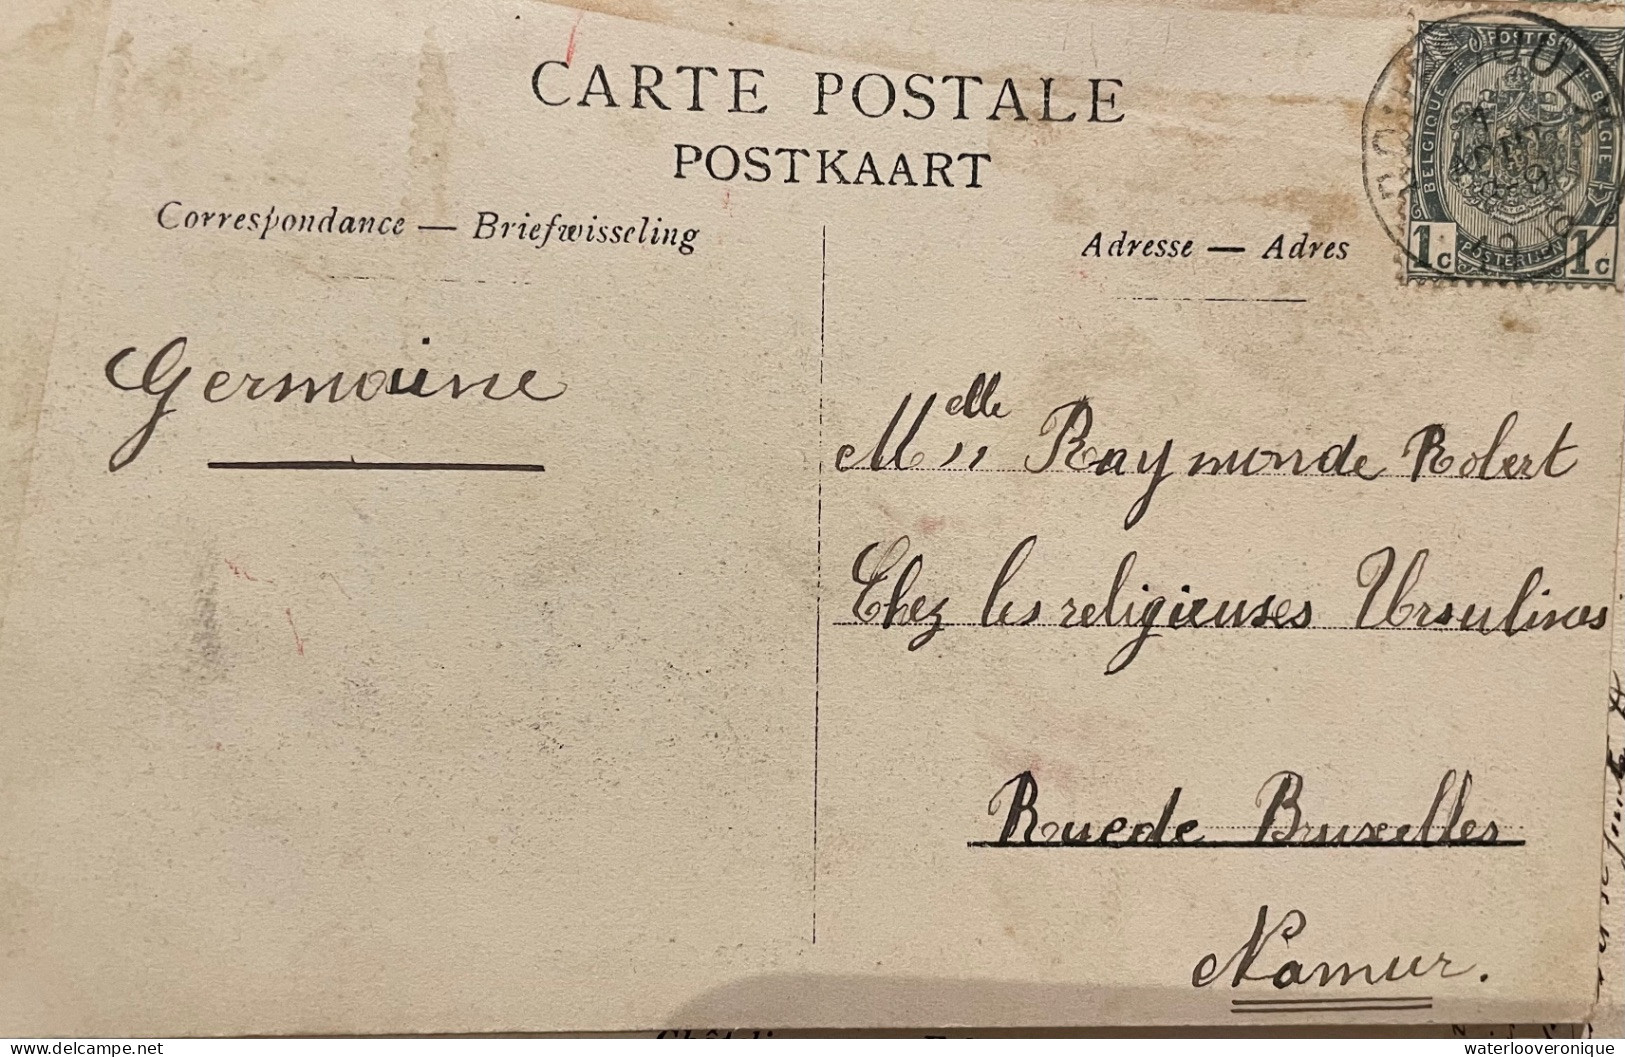 CARTE POSTALE
POSTKAART
Correspondance — Briefwisseling
Adresse — Adres
POSTES
BELGIQUE
BELGIE
1c POSTERIJEN 1c
Germaine
Melle Raymonde Robert
Chez les religieuses Ursulines
Rue de Bruxelles
Namur.
waterlooveronique